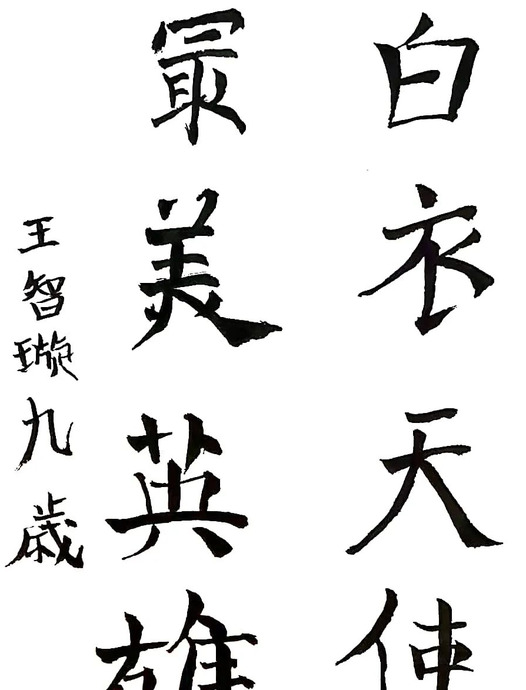 白衣天使
最美英雄
王智璇九歲